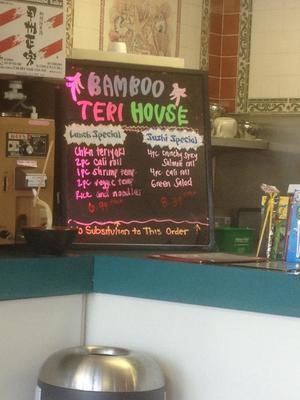 BAMBOO
TERI HOUSE
Lunch Special
Chkn teriyaki
2pc cali roll
1pc shrimp temp
2pc veggie temp
Rice and noodles
Sushi Special
4pc crunchy spicy
Salmon roll
4pc cali roll
Green Salad
No Substitution to This Order